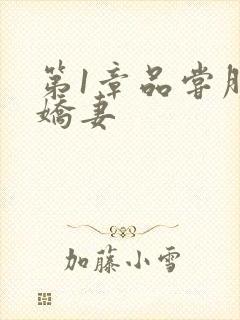 第1章品尝
娇妻
加藤小雪